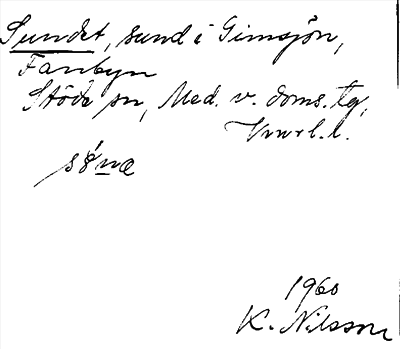 Sundet, sund i Gimsjön,
Fanbyn
Stöde sn, Med. v. doms. tg,
Vnrl. l.
1960
K. Nilsson